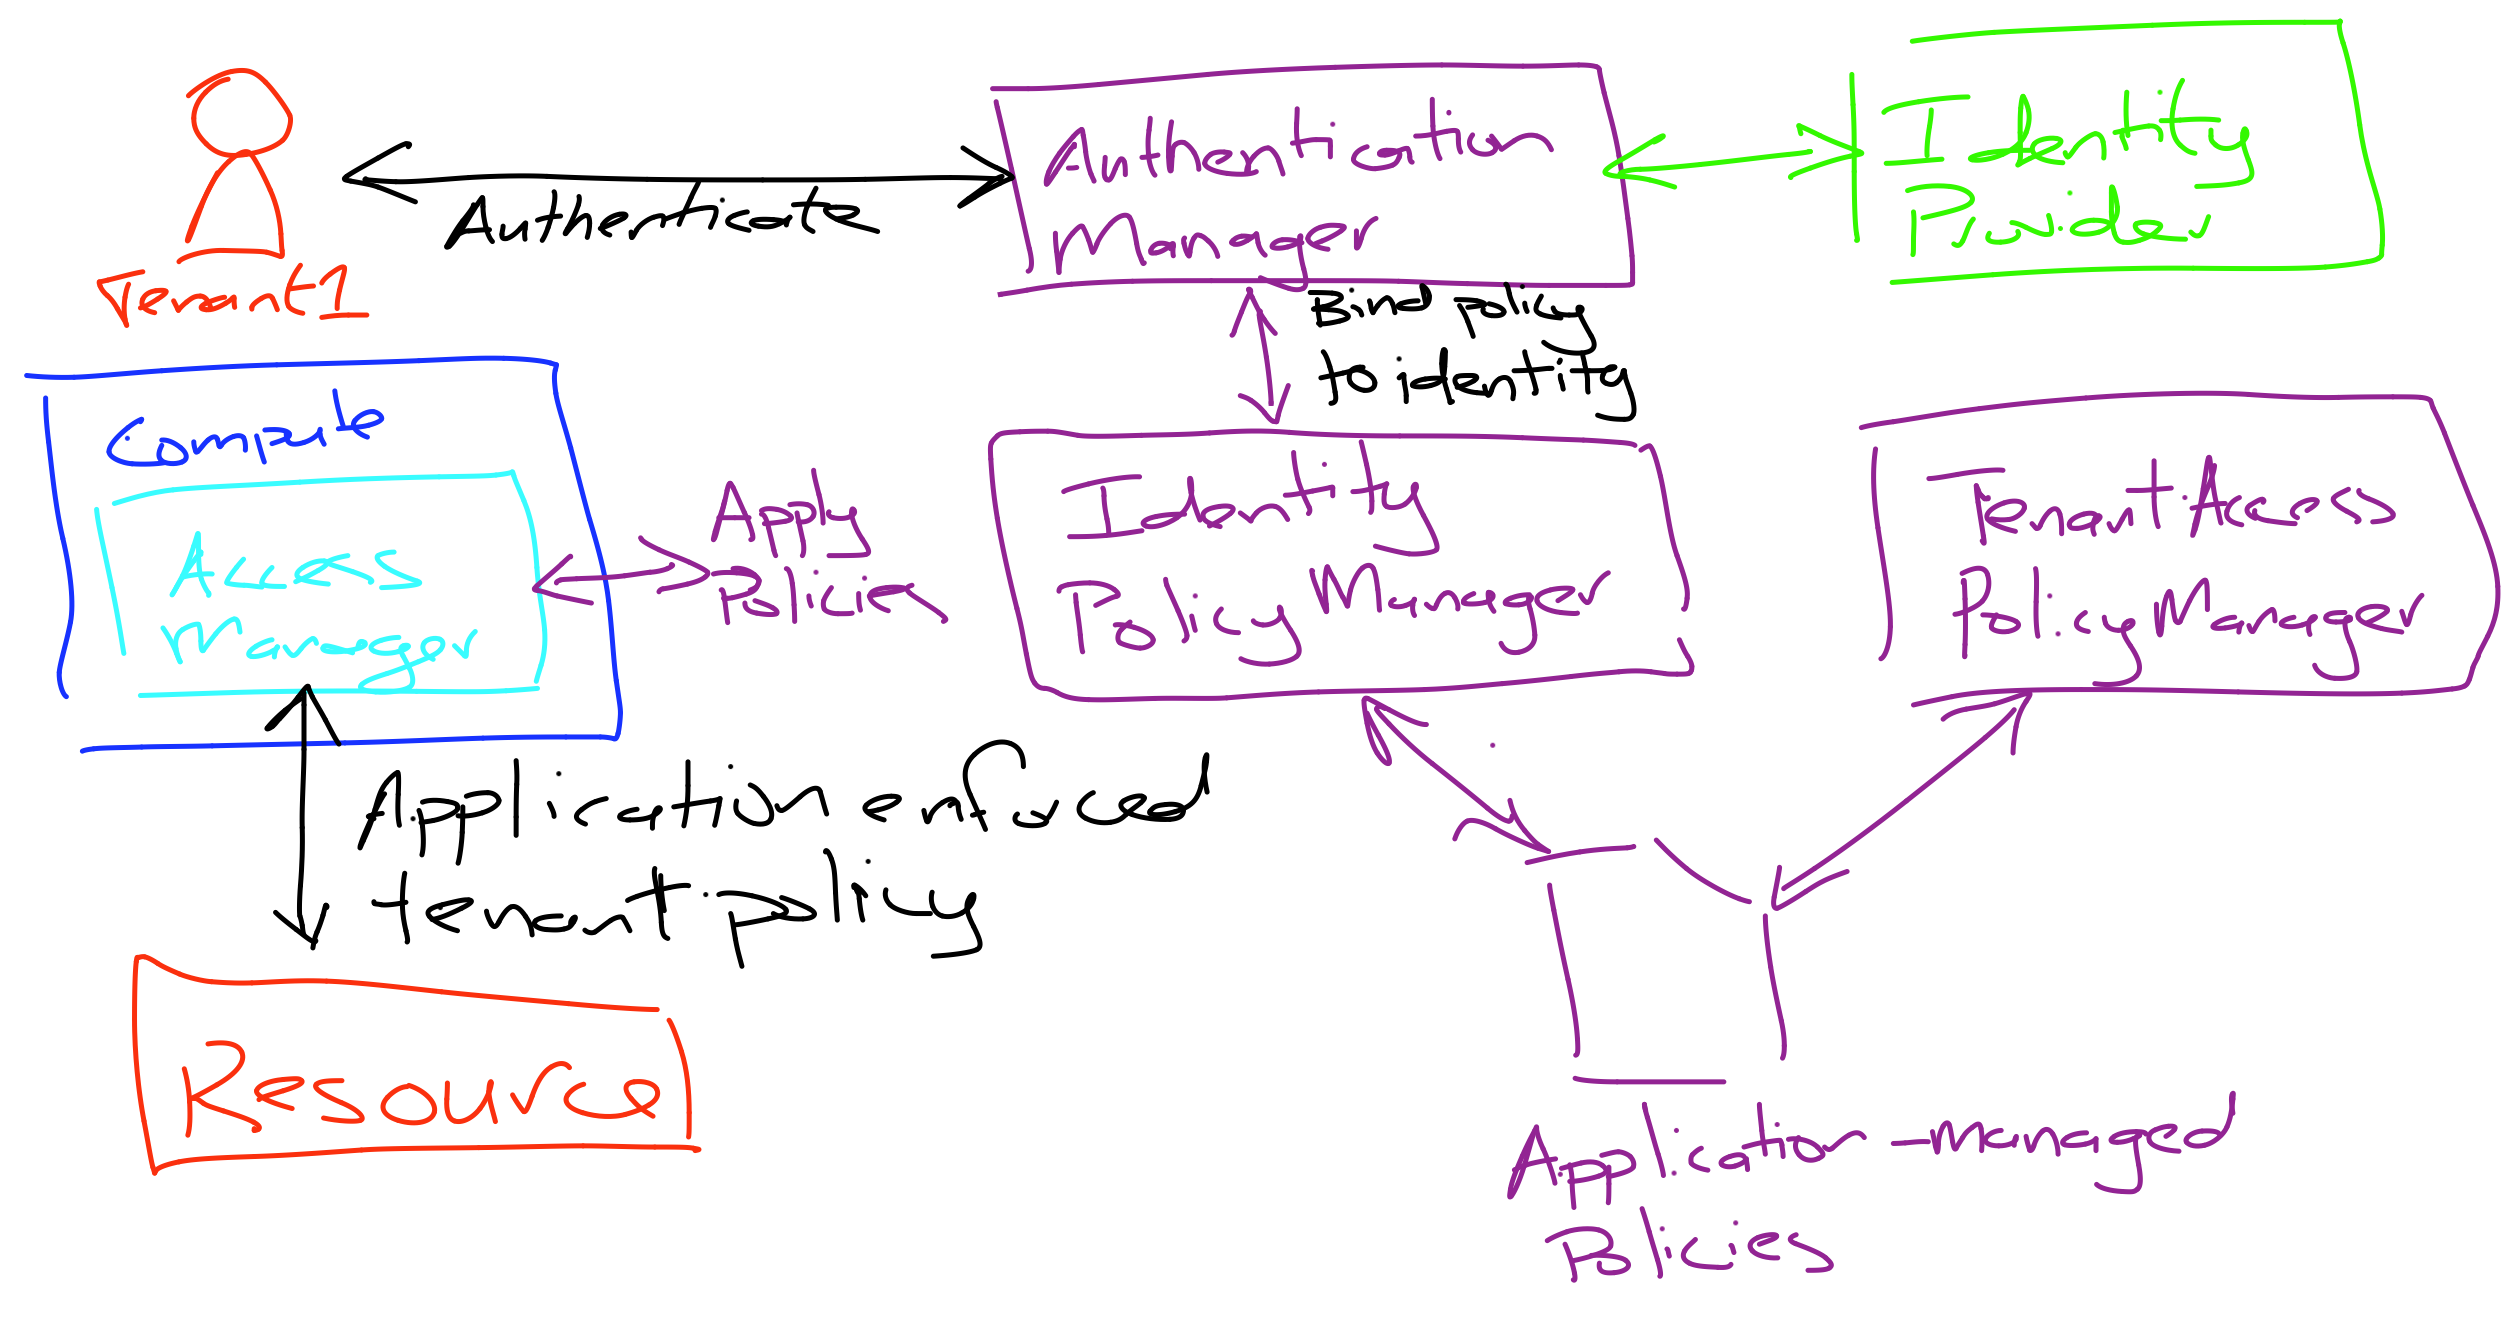 Tenant1
Authenticate
Authentication
Manager
Identity
Provider
Bind policy
to identity
Compute
Access
Manager
Apply
Policies
Identity
Policy Manager
Tenant Access
Policy Manager
Application enforced
tenant policy
Resource
Application-managed
Policies